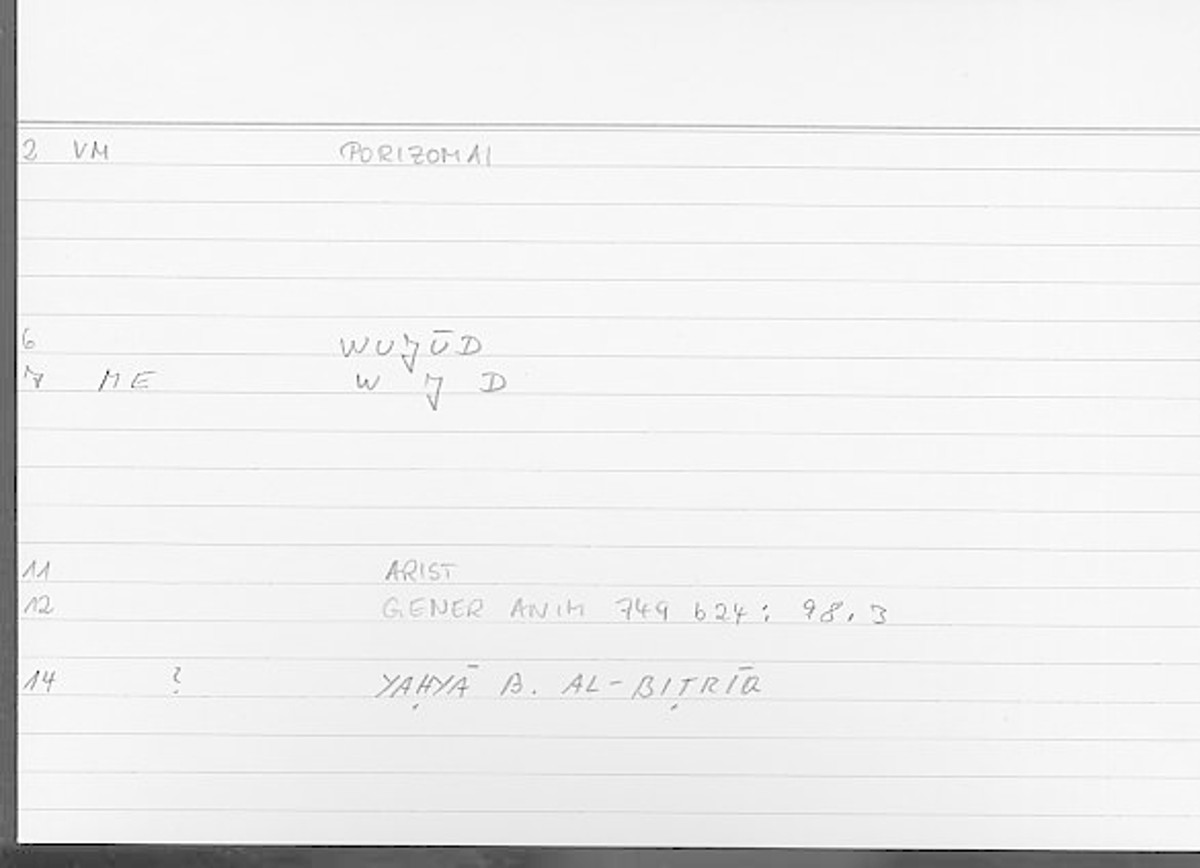 2 VM PORIZOMAI
6 WUJŪD
7 ME W J D
11 ARIST
12 GENER ANIM 749 b24: 98,3
14 ? YAḤYĀ B. AL-BIṬRĪQ